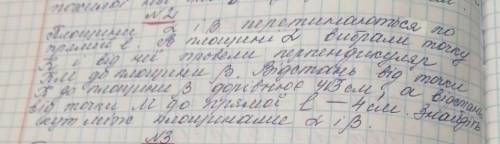 №2
Площини α і β перетинаються по
прямій в. В площині α вибрали точку
К і від неї провели перпендикуляр
КМ до площини β. Відстань від точки
К до площини β дорівнює 4√3 см, а відстань
від точки М до прямої в – 4 см. Знайдіть
кут між площинами α і β.
№3